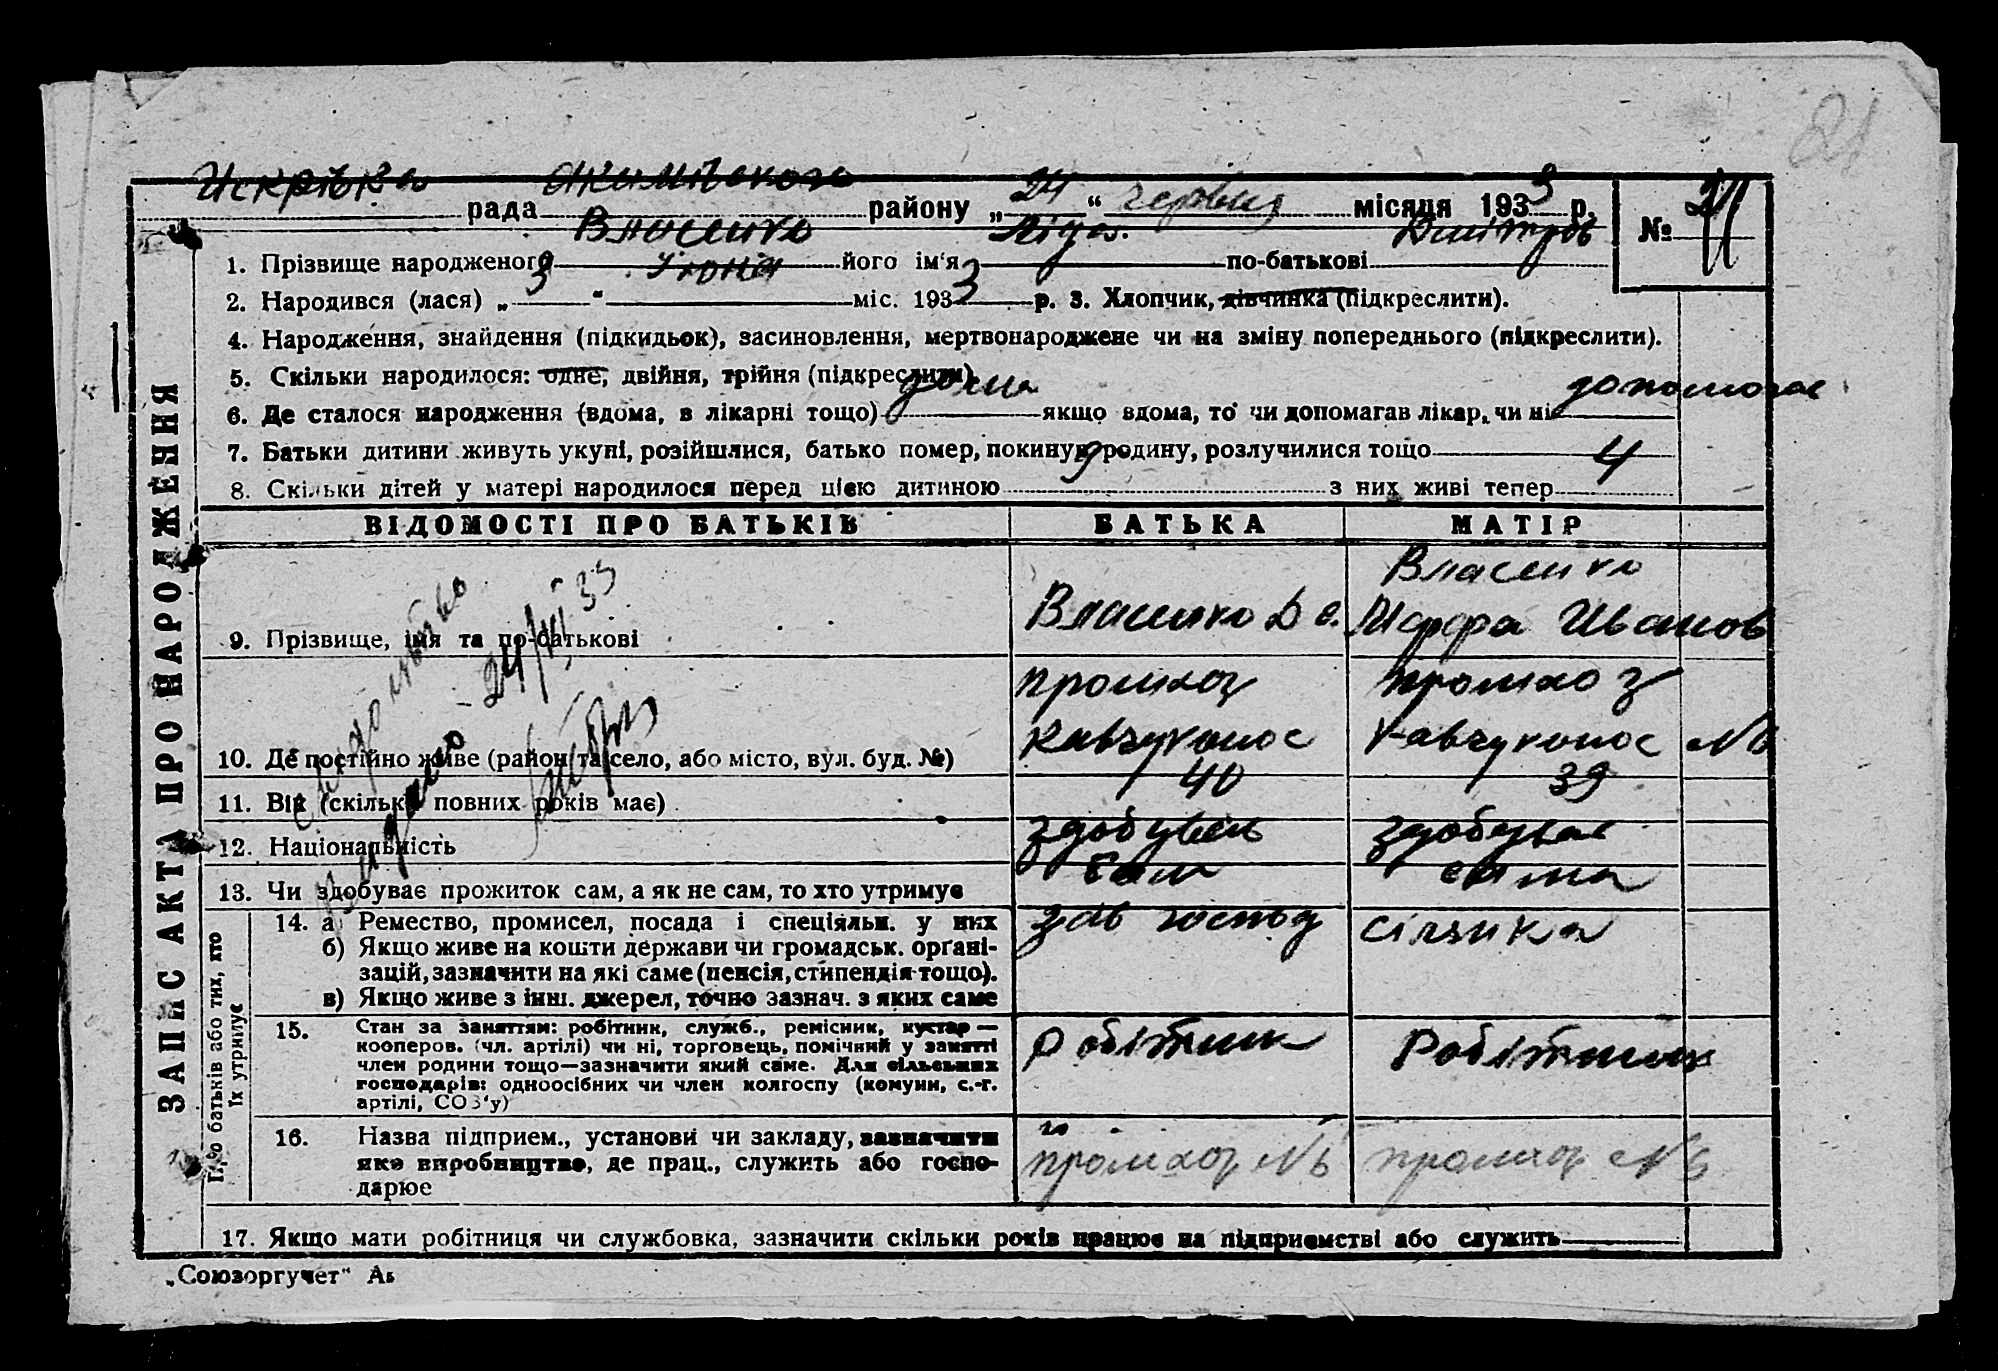 81
Искрівка рада Якимівского району „24“ червня місяця 1933 р. № 21
1. Прізвище народженого Власенко його ім'я Ліда. по-батькові Дмітров
2. Народився (лася) „3“ Июня міс. 1933 р. 3. Хлопчик, дівчинка (підкреслити).
4. Народження, знайдення (підкидьок), засиновлення, мертвонароджене чи на зміну попереднього (підкреслити).
5. Скільки народилося: одне, двійня, трійня (підкреслити)
6. Де сталося народження (вдома, в лікарні тощо) дома якщо вдома, то чи допомагав лікар, чи ні допомогає
7. Батьки дитини живуть укупі, розійшлися, батько помер, покинув родину, розлучилися тощо
8. Скільки дітей у матері народилося перед цією дитиною 9 з них живі тепер 4
ЗАПИС АКТА ПРО НАРОДЖЕННЯ
ВІДОМОСТІ ПРО БАТЬКІВ БАТЬКА МАТІР
9. Прізвище, імя та по-батькові Власенко Д е. Власенко Марфа Иванов
10. Де постійно живе (район та село, або місто, вул. буд. №) промхоз Кавчуконос промхоз Кавчуконос №
11. Вік (скільки повних років має) 40 39
12. Національність
13. Чи здобуває прожиток сам, а як не сам, то хто утримує здобуває сам здобуває сама
Про батьків або тих, хто їх утримує
14. а) Ремество, промисел, посада і спеціяльн. у них зав
б) Якщо живе на кошти держави чи громадськ. орґані-
зацій, зазначити на які саме (пенсія, стипендія тощо).
в) Якщо живе з інш. джерел, точно зазнач. з яких саме
15. Стан за заняттям: робітник, служб., ремісник, кустар —
кооперов. (чл. артілі) чи ні, торговець, помічний у занятті
член родини тощо—зазначити який саме. Для сільських
господарів: одноосібних чи член колгоспу (комуни, с.-г.
артілі, СОЗ'у) Робітник Робітниця
16. Назва підприєм., установи чи закладу, зазначити
яке виробництво, де прац., служить або госпо-
дарює промхоз № промхоз №
17. Якщо мати робітниця чи службовка, зазначити скільки років працює на підприємстві або служить
свидольство
видано 24/VI 33
„Союзоргучет“